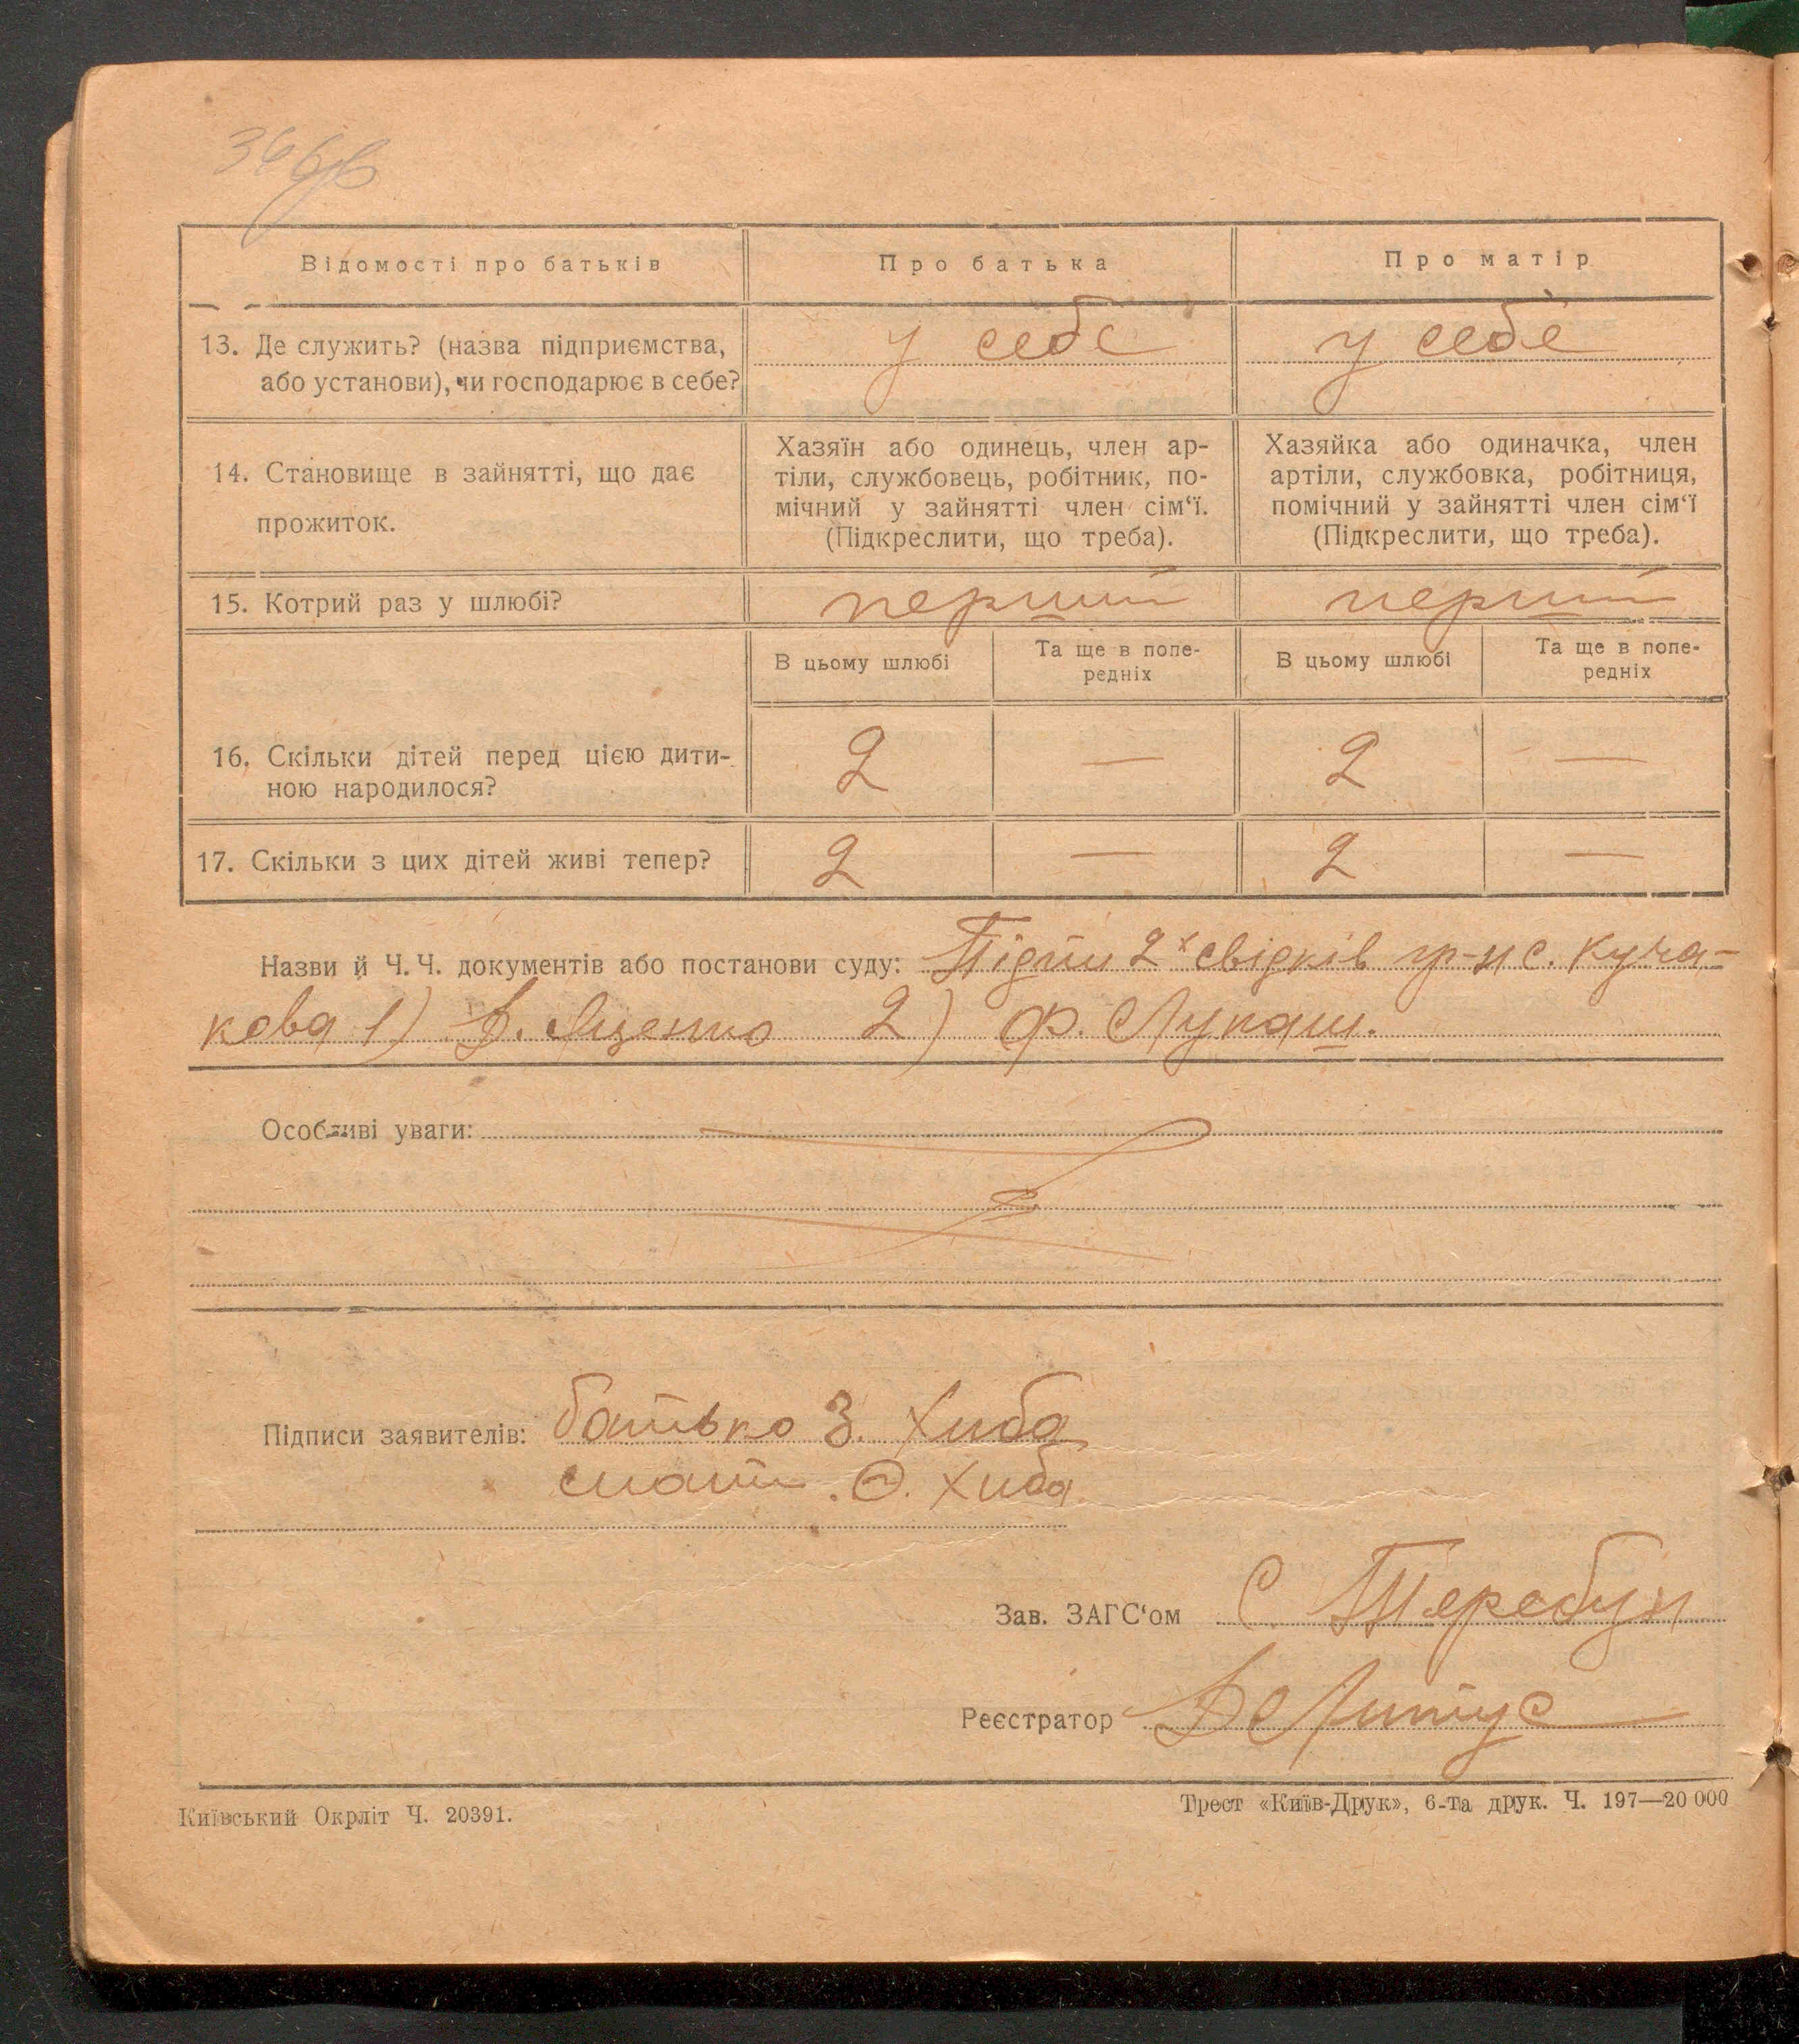 Відомості про батьків
Про батька
Про матір
13. Де служить? (назва підприємства,
або установи), чи господарює в себе?
у себе
у себе
14. Становище в зайнятті, що дає
прожиток.
Хазяїн або одинець, член ар-
тіли, службовець, робітник, по-
мічний у зайнятті член сім‘ї.
(Підкреслити, що треба).
Хазяйка або одиначка, член
артіли, службовка, робітниця,
помічний у зайнятті член сім‘ї
(Підкреслити, що треба).
15. Котрий раз у шлюбі?
перший
перший
В цьому шлюбі
Та ще в попе-
редніх
В цьому шлюбі
Та ще в попе-
редніх
16. Скільки дітей перед цією дити-
ною народилося?
2 — 2 —
17. Скільки з цих дітей живі тепер?
2 — 2 —
Назви й Ч.Ч. документів або постанови суду: 2х свідків гр-н с. Куча-
кова 1) Яценко 2) Ф. Лукаш.
Особливі уваги:
Підписи заявителів: батько З. Хиба
мати. О. Хиба
Зав. ЗАГС‘ом С. Теребун
Реєстратор Литус
Київський Окрліт Ч. 20391.
Трест «Київ-Друк», 6-та друк. Ч. 197—20 000